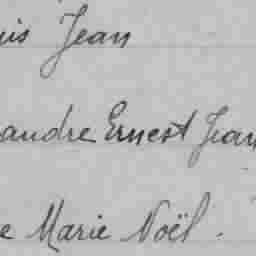 uis Jean
andre Ernest Jean
e Marie Noël.